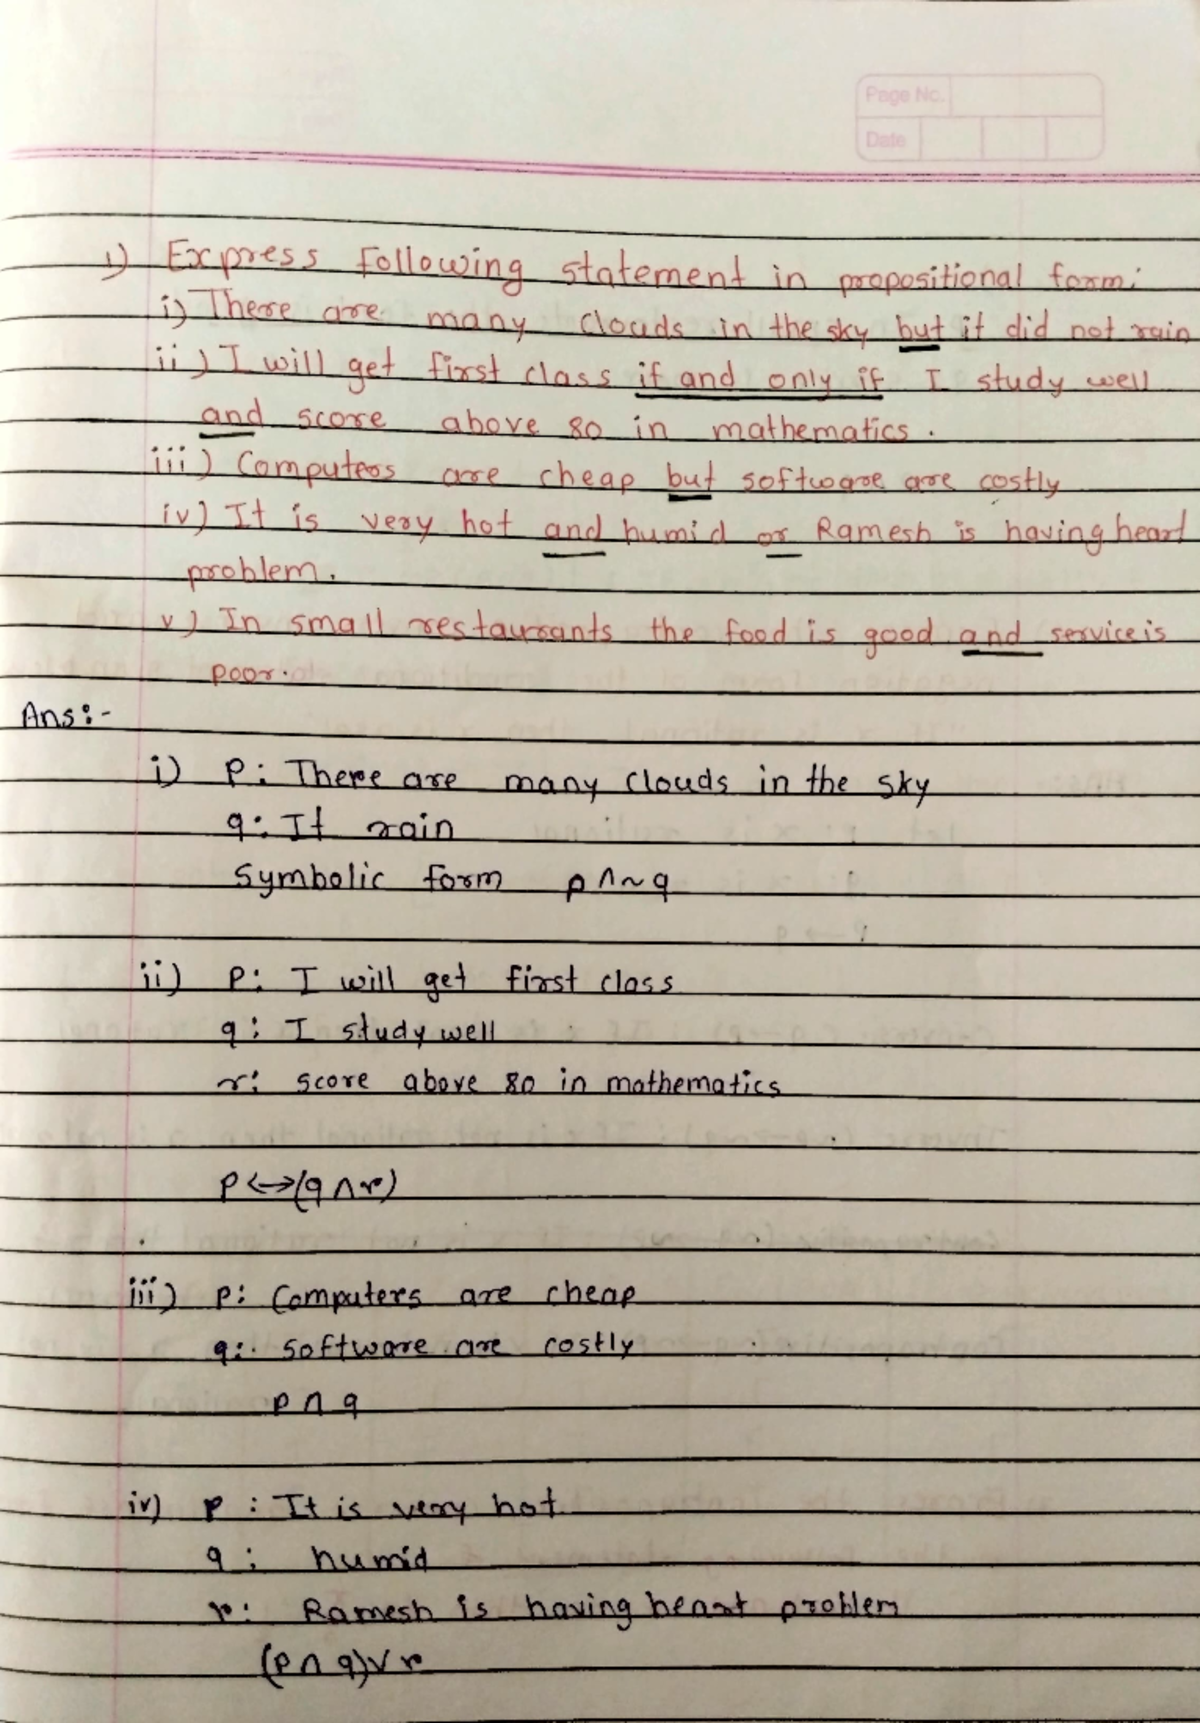 Page No.
Date
1) Express following statement in propositional form:
i) There are many clouds in the sky but it did not rain
ii) I will get first class if and only if I study well
and score above 80 in mathematics.
iii) Computers are cheap but software are costly
iv) It is very hot and humid or Ramesh is having heart
problem.
v) In small restaurants the food is good and service is
poor.
Ans:-
i) P: There are many clouds in the sky
q: It rain
Symbolic form p∧~q
ii) P: I will get first class
q: I study well
r: score above 80 in mathematics
P↔(q∧r)
iii) P: Computers are cheap
q: software are costly
p∧q
iv) p: It is very hot
q: humid
r: Ramesh is having heart problem
(p∧q)∨r